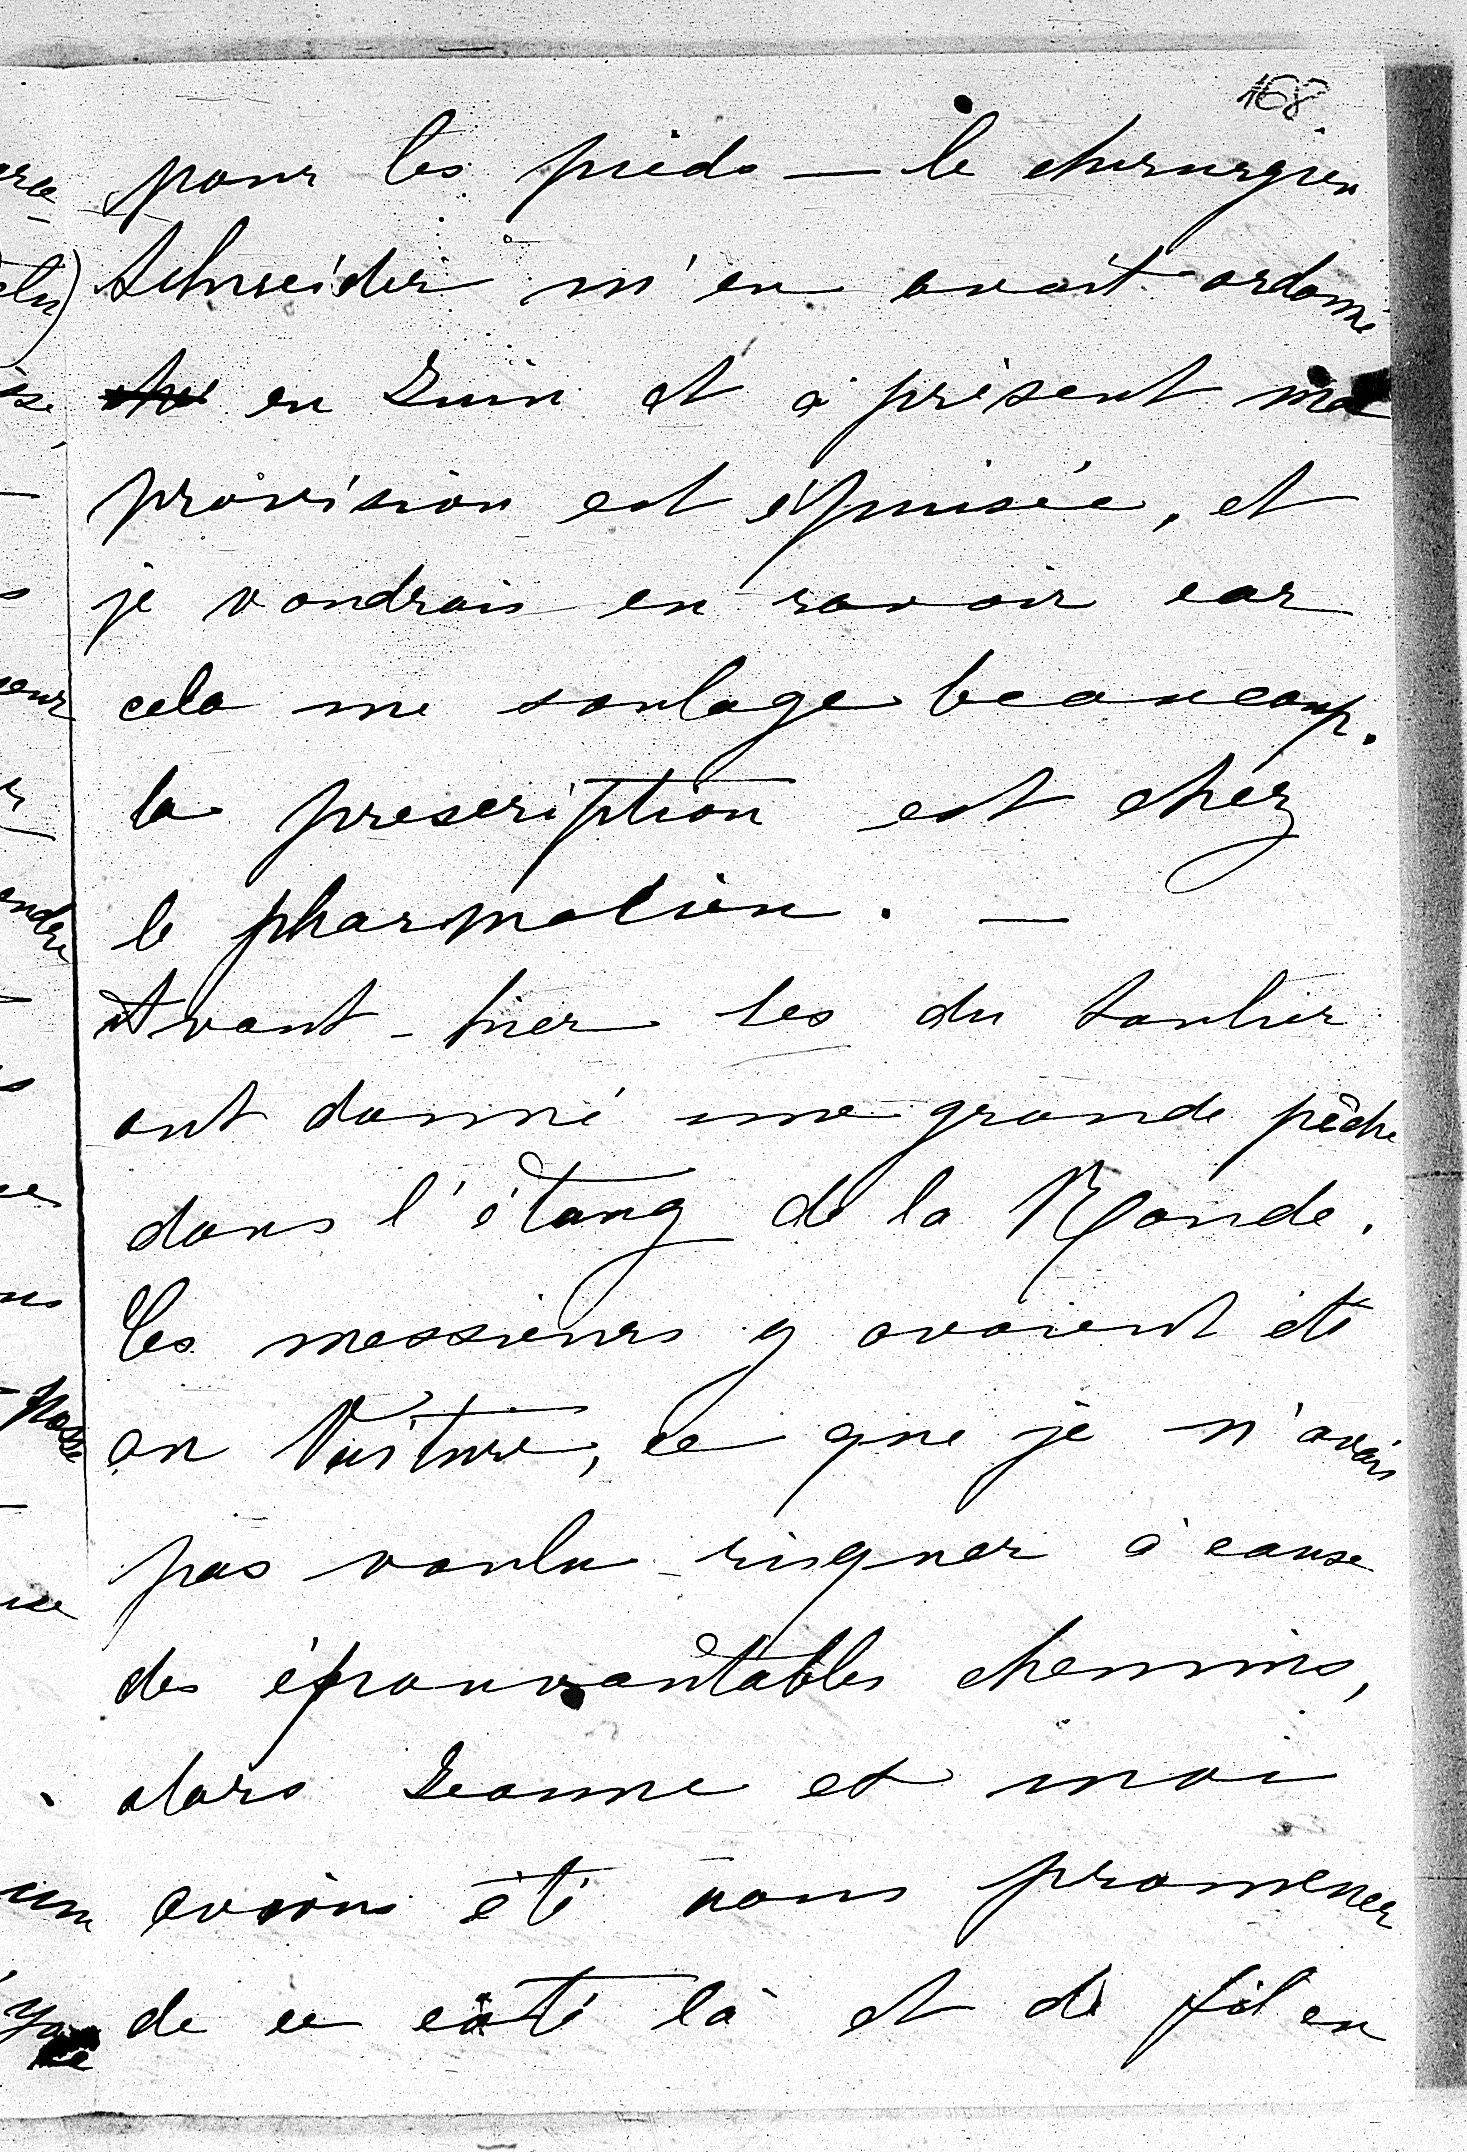 168.
pour les pieds — le chirurgien
Schneider m'en avait ordonné
en Juin et à présent ma
provision est épuisée, et
je voudrais en ravoir car
cela me soulage beaucoup.
la prescription est chez
le pharmacien. —
Avant-hier les du
ont donné une grande pêche
dans l'étang de la Ronde.
Les messieurs y avaient été
en Voiture, ce que je n'avais
pas voulu risquer à cause
des épouvantables chemins,
alors Jeanne et moi
avions été nous promener
de ce côté là et de fil en